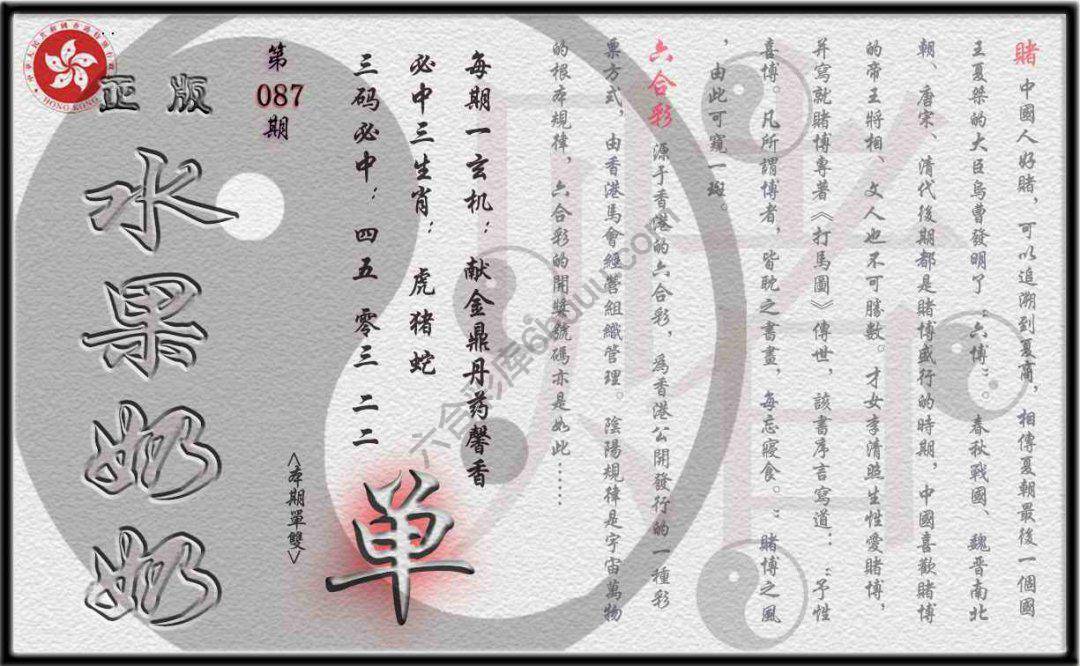 賭 中國人好賭，可以追溯到夏商，相傳夏朝最後一個國
王夏桀的大臣烏曹發明了：六博：。春秋戰國、魏晉南北
朝、唐宋、清代後期都是賭博盛行的時期，中國喜歡賭博
的帝王將相、文人也不可勝數。才女李清照生性愛賭博，
并寫就賭博專著《打馬圖》傳世，該書序言寫道：：予性
喜博。凡所謂博者，皆耽之書畫，每忘寢食。：賭博之風
，由此可窺一斑。
六合彩 源于香港的六合彩，為香港公開發行的一種彩
票方式，由香港馬會經營組織管理。陰陽規律是宇宙萬物
的根本規律，六合彩的開獎號碼亦是如此……
每期一玄机：献金鼎丹药馨香
必中三生肖：虎猪蛇
三码必中：四五 零三 二二
单
<本期單雙>
第
087
期
正版
水果奶奶
HONG KONG
六合彩库6kuuu.com